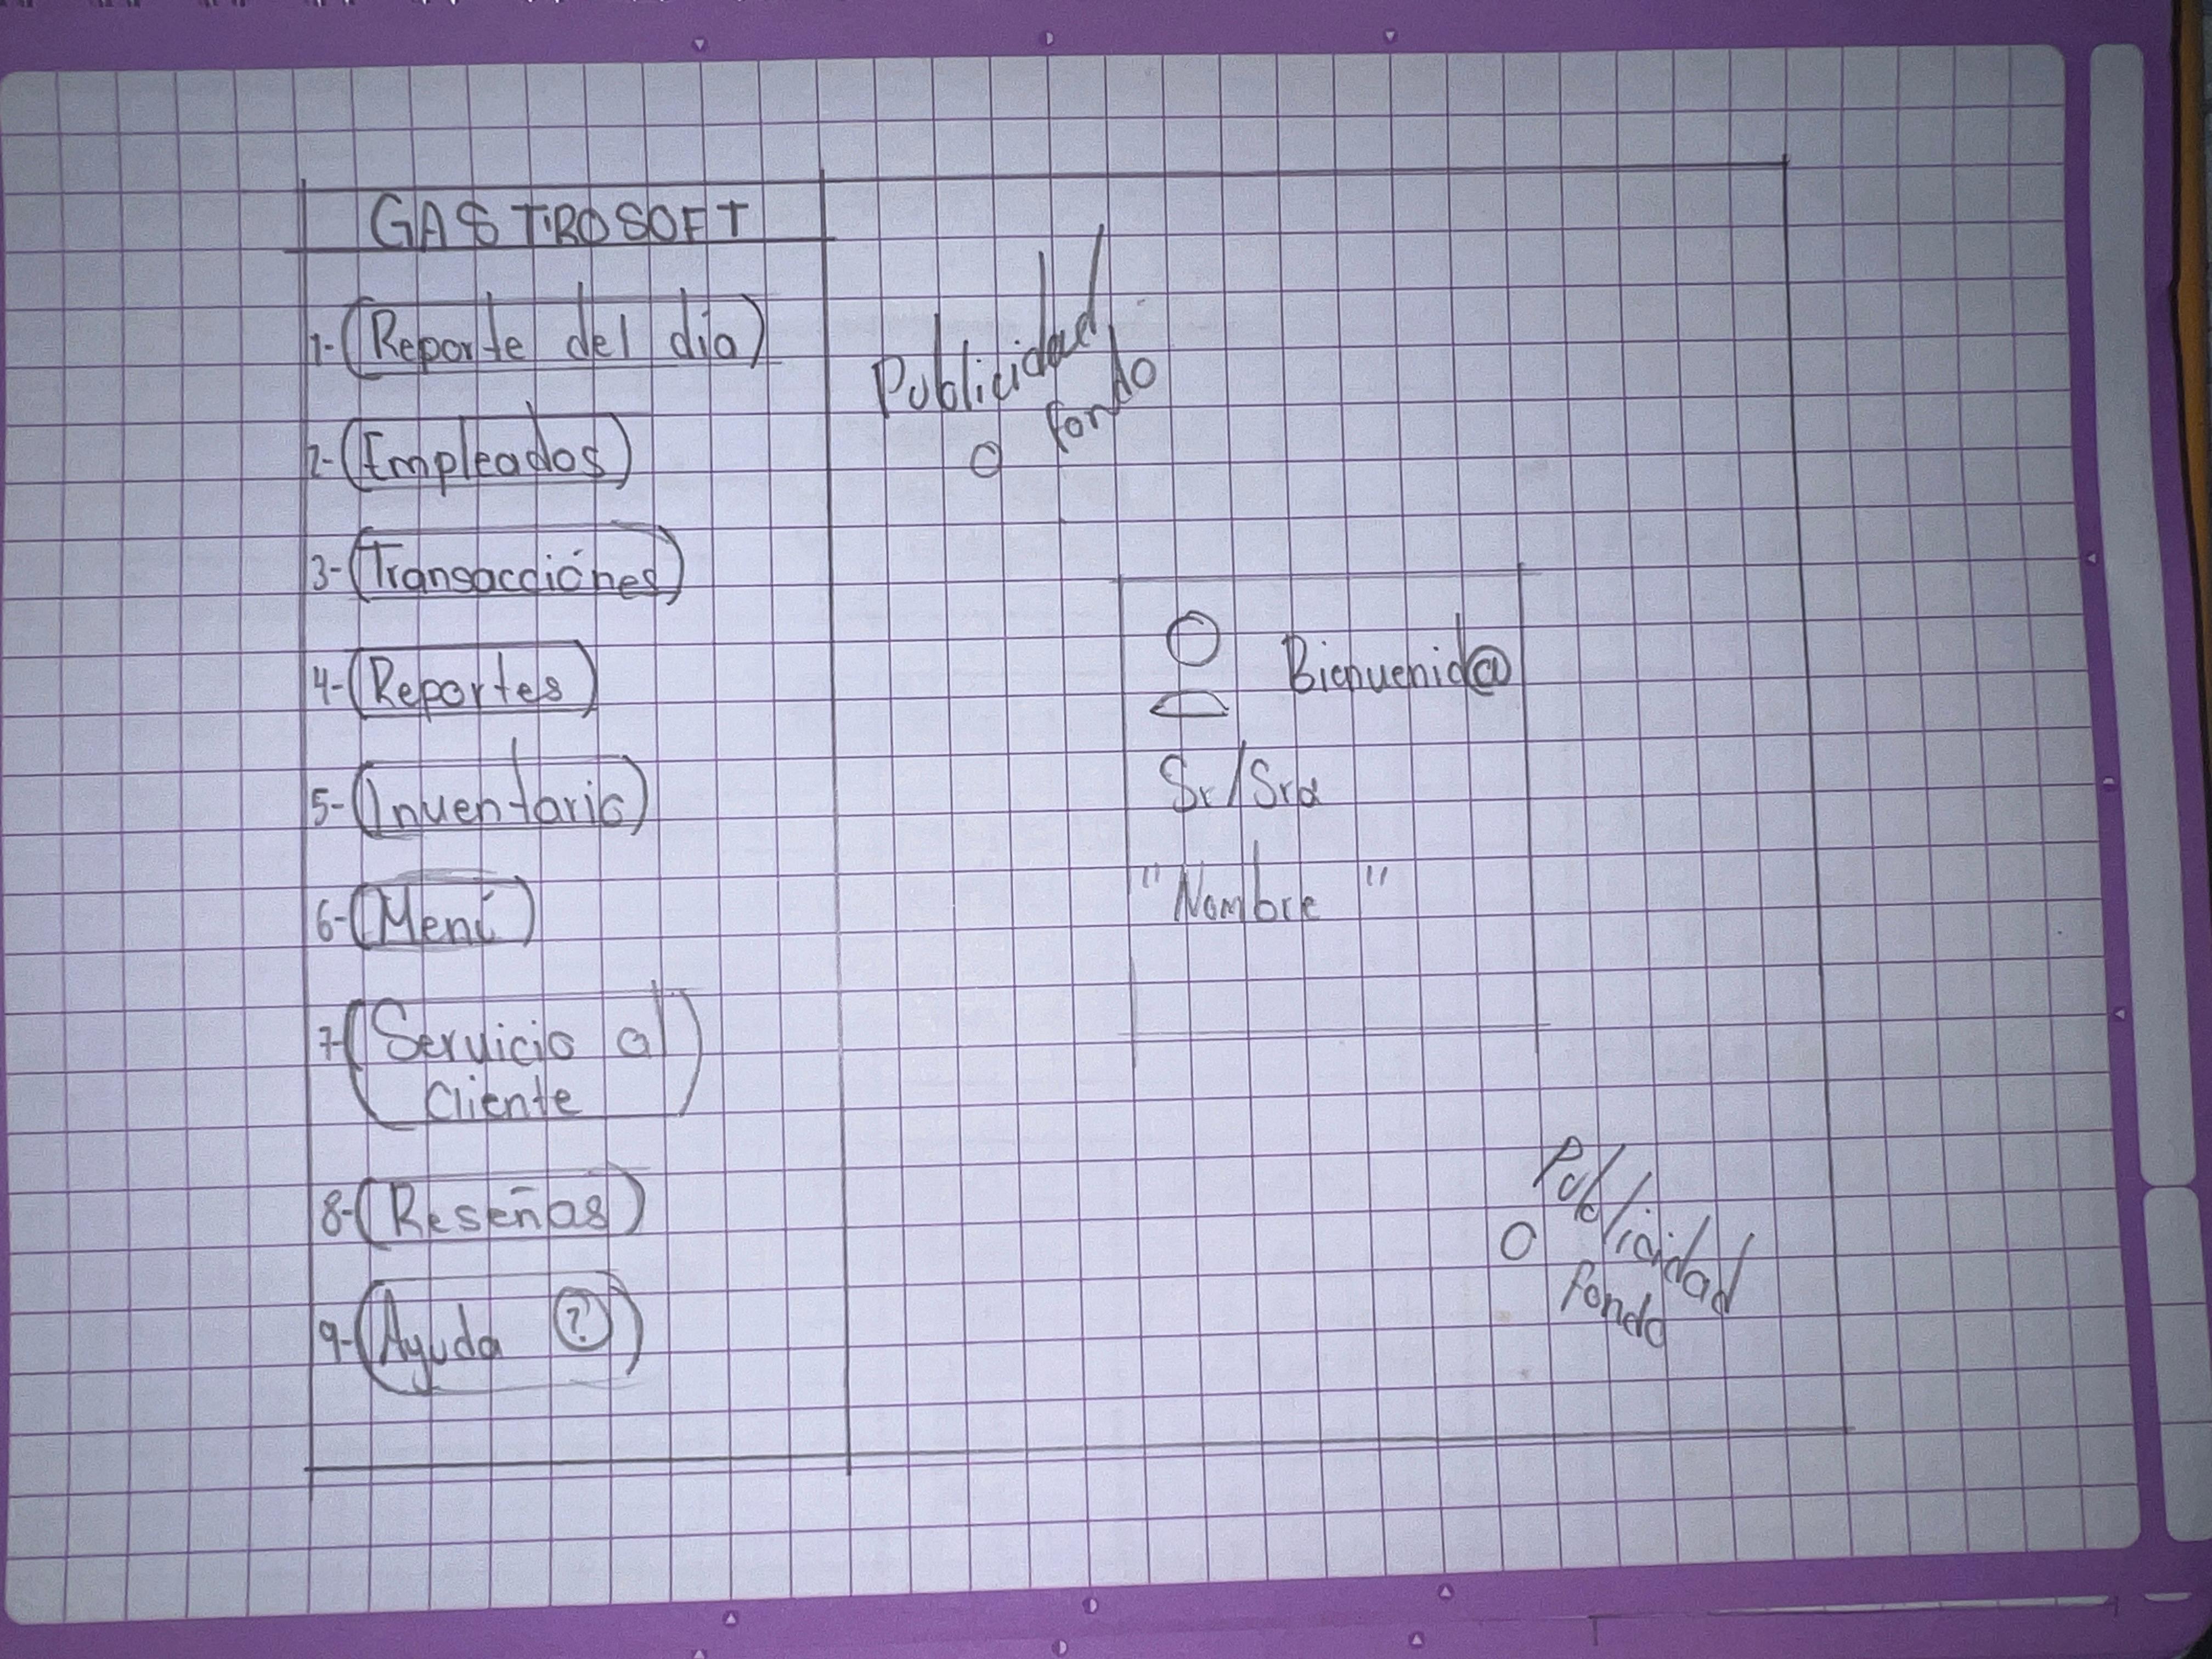 GASTROSOFT
1- Reporte del día
2- Empleados
3- Transacciónes
4- Reportes
5- Inventario
6- Menú
7- Servicio al
Cliente
8- Reseñas
9- Ayuda ?
Publicidad
o fondo
Bienvenid@
Sr/Sra
"Nombre "
Publicidad
o fondo